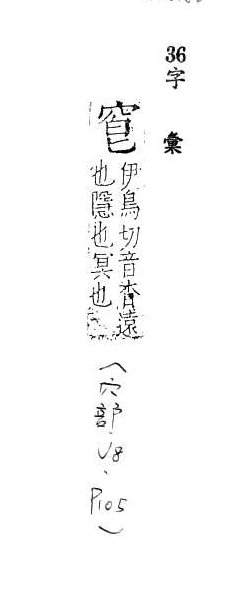 36字 彙
伊鳥切音杳遠
也隱也冥也
(穴部、V8、P105)